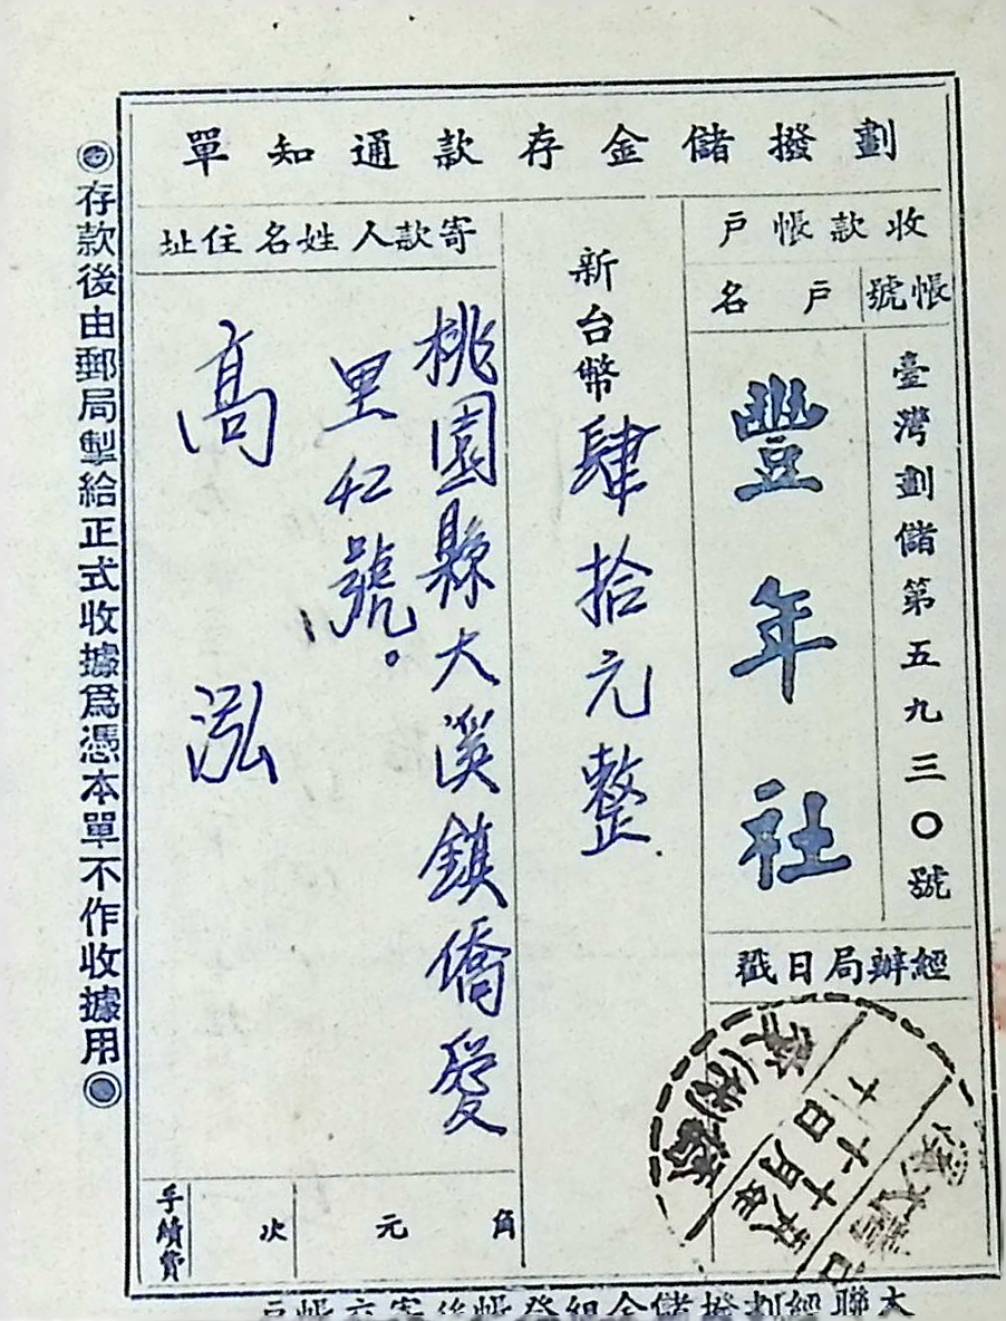 劃撥儲金存款通知單
收款帳戶
帳號
戶名
臺灣劃儲第五九三〇號
豐年社
經辦局日戳
新台幣肆拾元整
寄款人姓名住址
桃園縣大溪鎮僑愛
里42號。
高泓
手續費
次
元
角
存款後由郵局掣給正式收據爲憑本單不作收據用